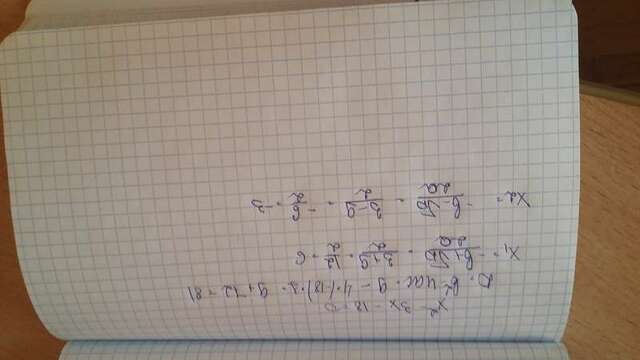 x² - 3x - 18 = 0
D = b² - 4ac = 9 - 4·(-18)·1 = 9 + 72 = 81
x₁ = (-b+√D)/2a = (3+9)/2 = 12/2 = 6
x₂ = (-b-√D)/2a = (3-9)/2 = -6/2 = -3